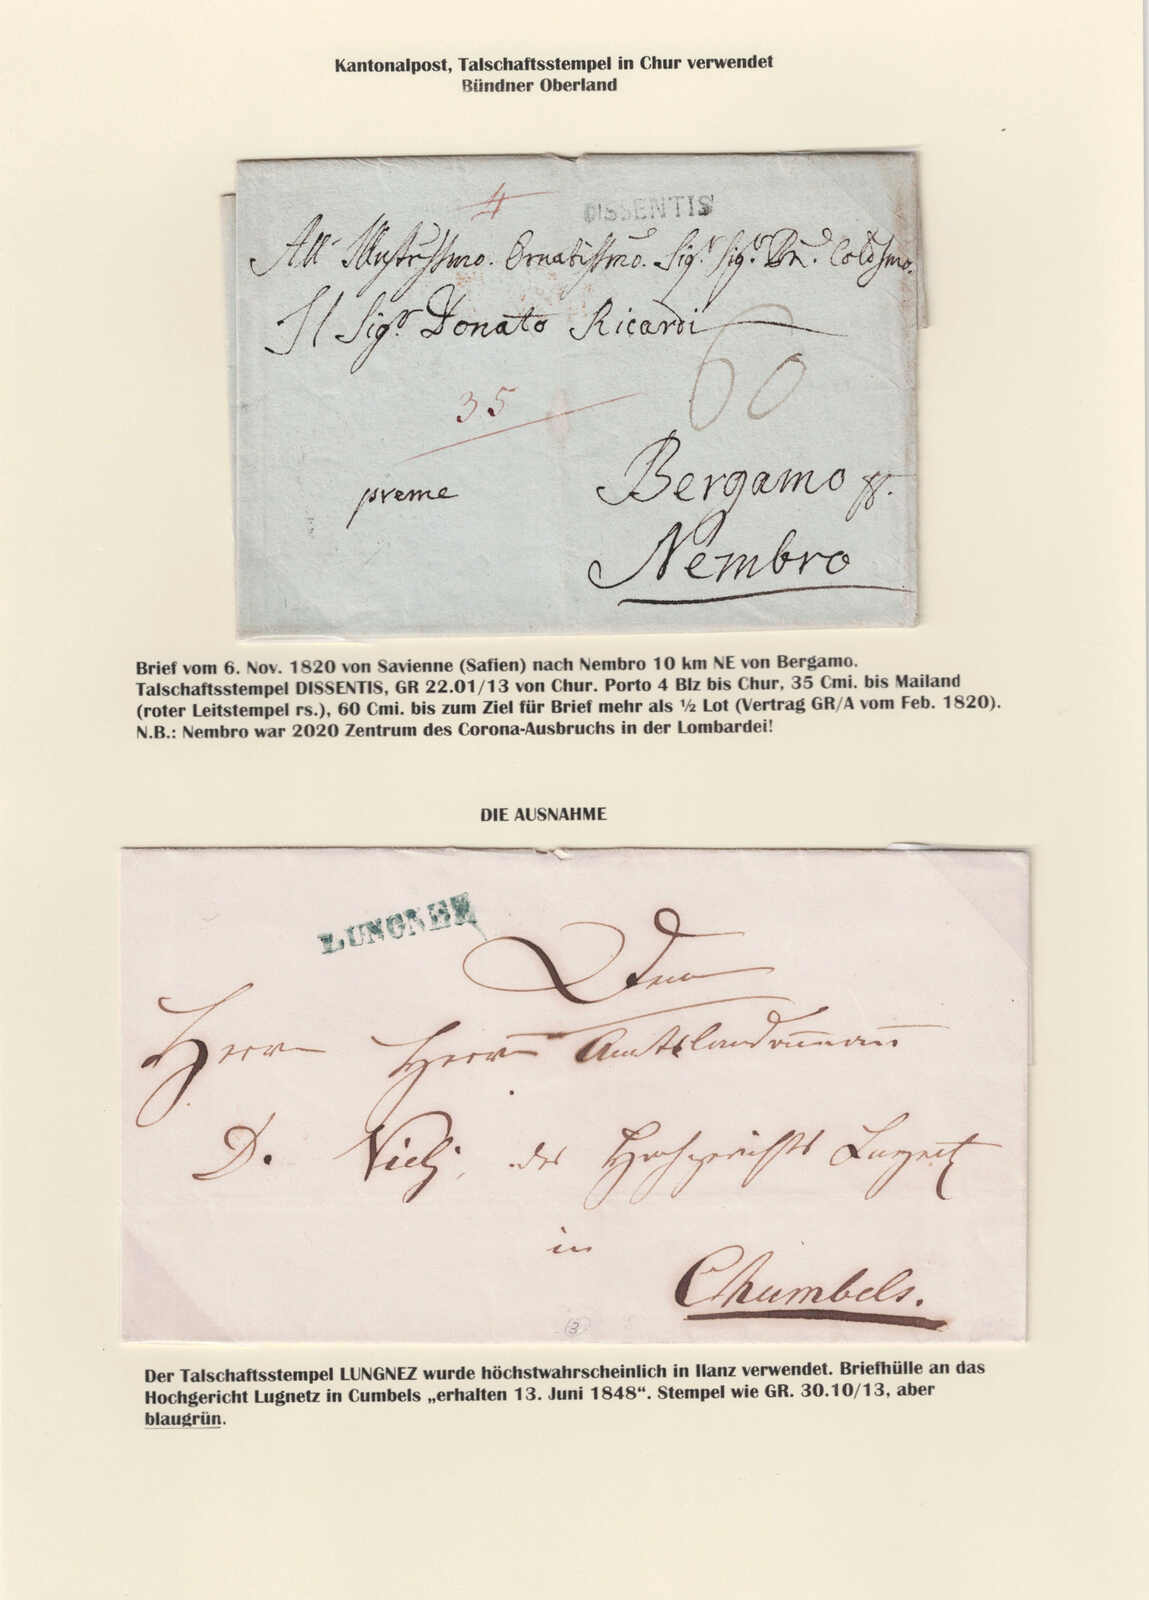 Kantonalpost, Talschaftsstempel in Chur verwendet
Bündner Oberland
4
DISSENTIS
All Illustrissmo. Ornatissmo. Sigr. Sigr. Pn. ColSmo.
Il Sigr Donato Ricardi
60
35
preme
Bergamo
Nembro
Brief vom 6. Nov. 1820 von Savienne (Safien) nach Nembro 10 km NE von Bergamo.
Talschaftsstempel DISSENTIS, GR 22.01/13 von Chur. Porto 4 Blz bis Chur, 35 Cmi. bis Mailand
(roter Leitstempel rs.), 60 Cmi. bis zum Ziel für Brief mehr als ½ Lot (Vertrag GR/A vom Feb. 1820).
N.B.: Nembro war 2020 Zentrum des Corona-Ausbruchs in der Lombardei!
DIE AUSNAHME
LUNGNEZ
Dem
Herrn Herrn Amtslandammann
D. Vieli, des Hochgerichts Lugnetz
in
Chumbels.
(3)
Der Talschaftsstempel LUNGNEZ wurde höchstwahrscheinlich in Ilanz verwendet. Briefhülle an das
Hochgericht Lugnetz in Cumbels „erhalten 13. Juni 1848“. Stempel wie GR. 30.10/13, aber
blaugrün.